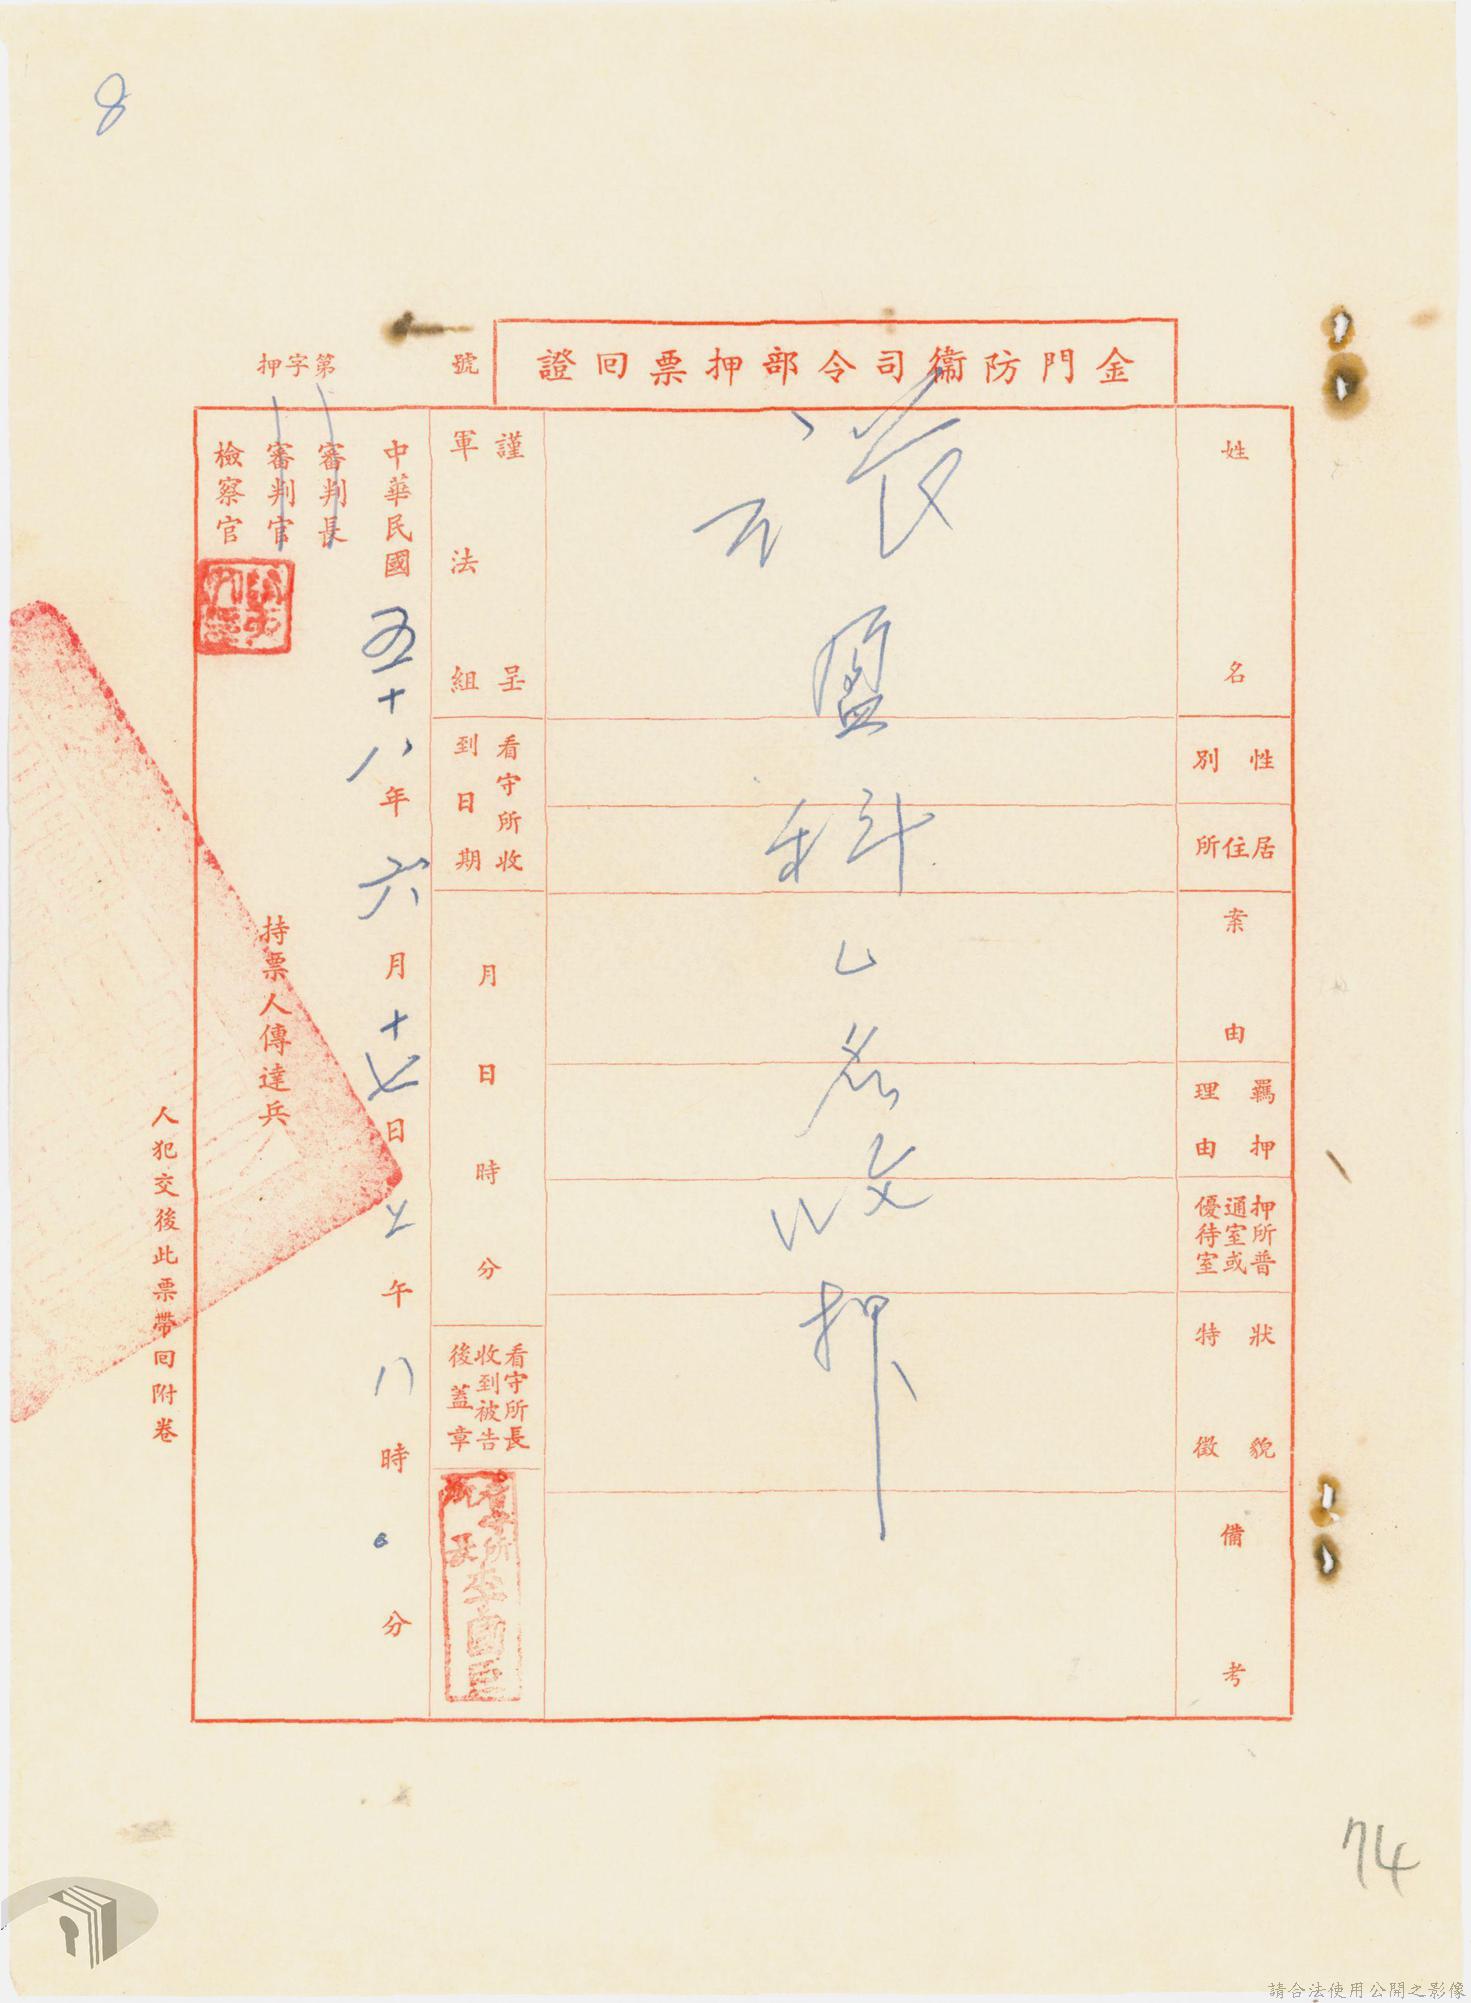 8
金門防衞司令部押票回證
押字第
號
姓名
性別
居住所
案由
羈押理由
押所普通室或優待室
狀貌特徵
備考
盈科乙名收押
謹呈
軍法組
看守所收到日期
月日時分
看守所長收到被告後蓋章
看守所長李國臣
中華民國五十八年六月十七日上午八時0分
審判長
審判官
檢察官
持票人傳達兵
人犯交後此票帶回附卷
74
請合法使用公開之影像